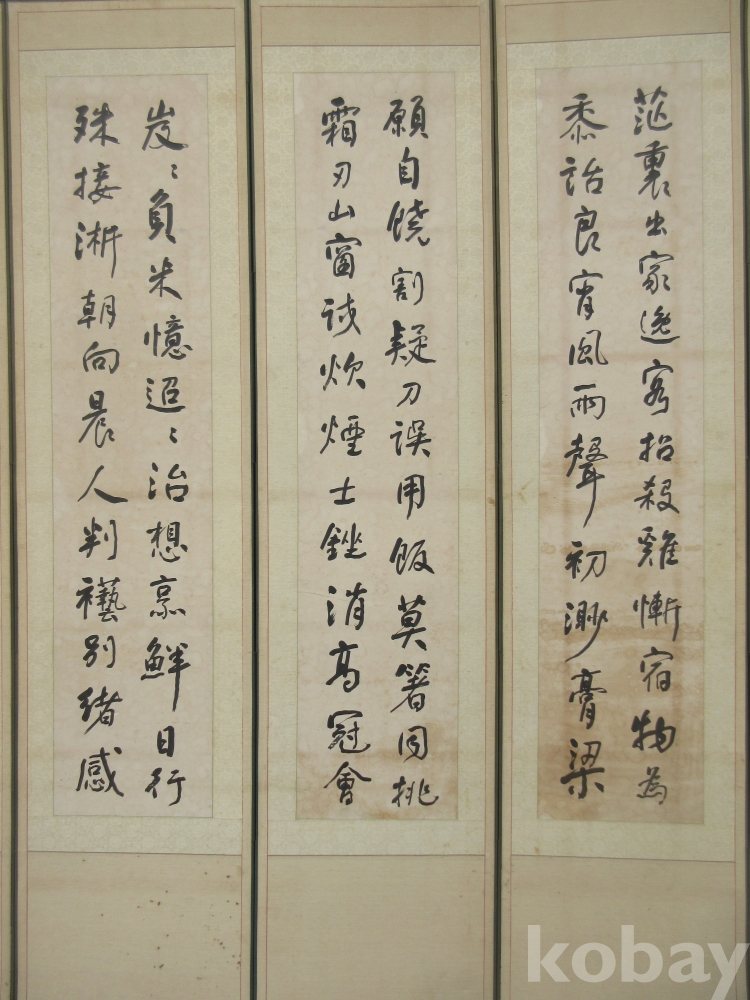 裏出家逸客招殺雞慚宿物為
黍話良宵風雨聲初渺膏粱
願自饒割疑刀誤用飯莫箸同挑
霜刃山窗炊煙士銼消高冠會
岌〻負米憶迢〻治想烹鮮日行
殊接淅朝向晨人判襼別緒感
kobay